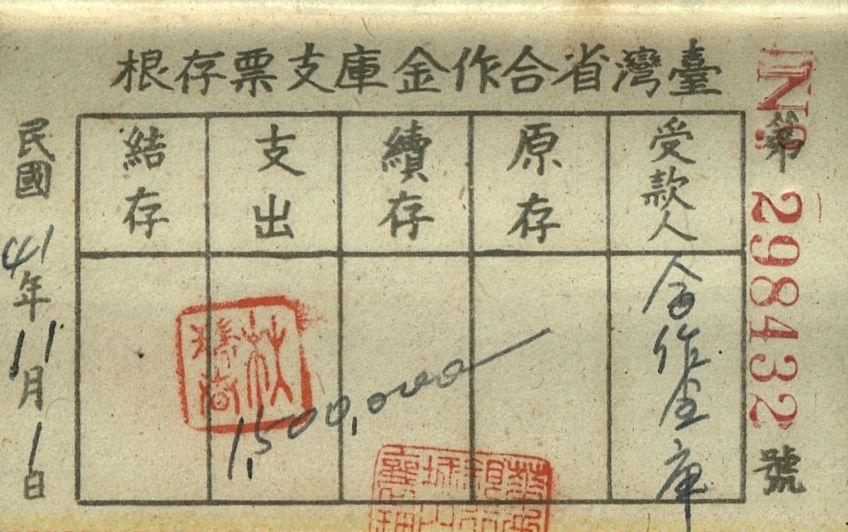 臺灣省合作金庫支票存根
第 No 298432 號
受款人
合作金庫
原存
續存
支出
1,500,000
結存
民國41年11月1日